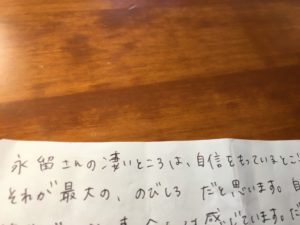 永留さんの凄いところは、自信をもっているところ
それが最大の、のびしろ だと思います。自
感じています。だ